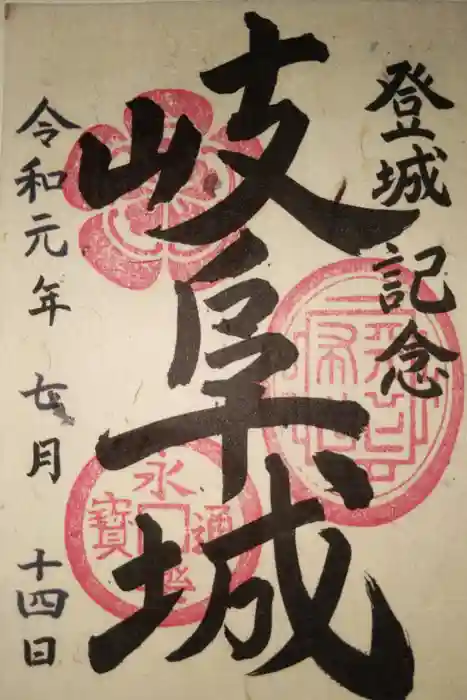 登城記念
岐阜城
令和元年 七月 十四日
永樂通寳